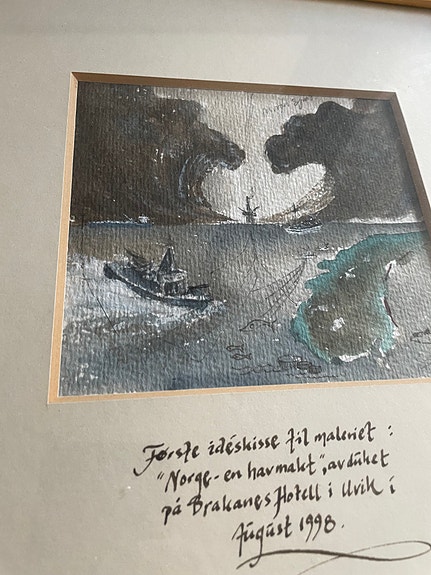 Første idéskisse til maleriet :
"Norge - en havmakt", avduket
på Brakanes Hotell i Ulvik i
August 1998.